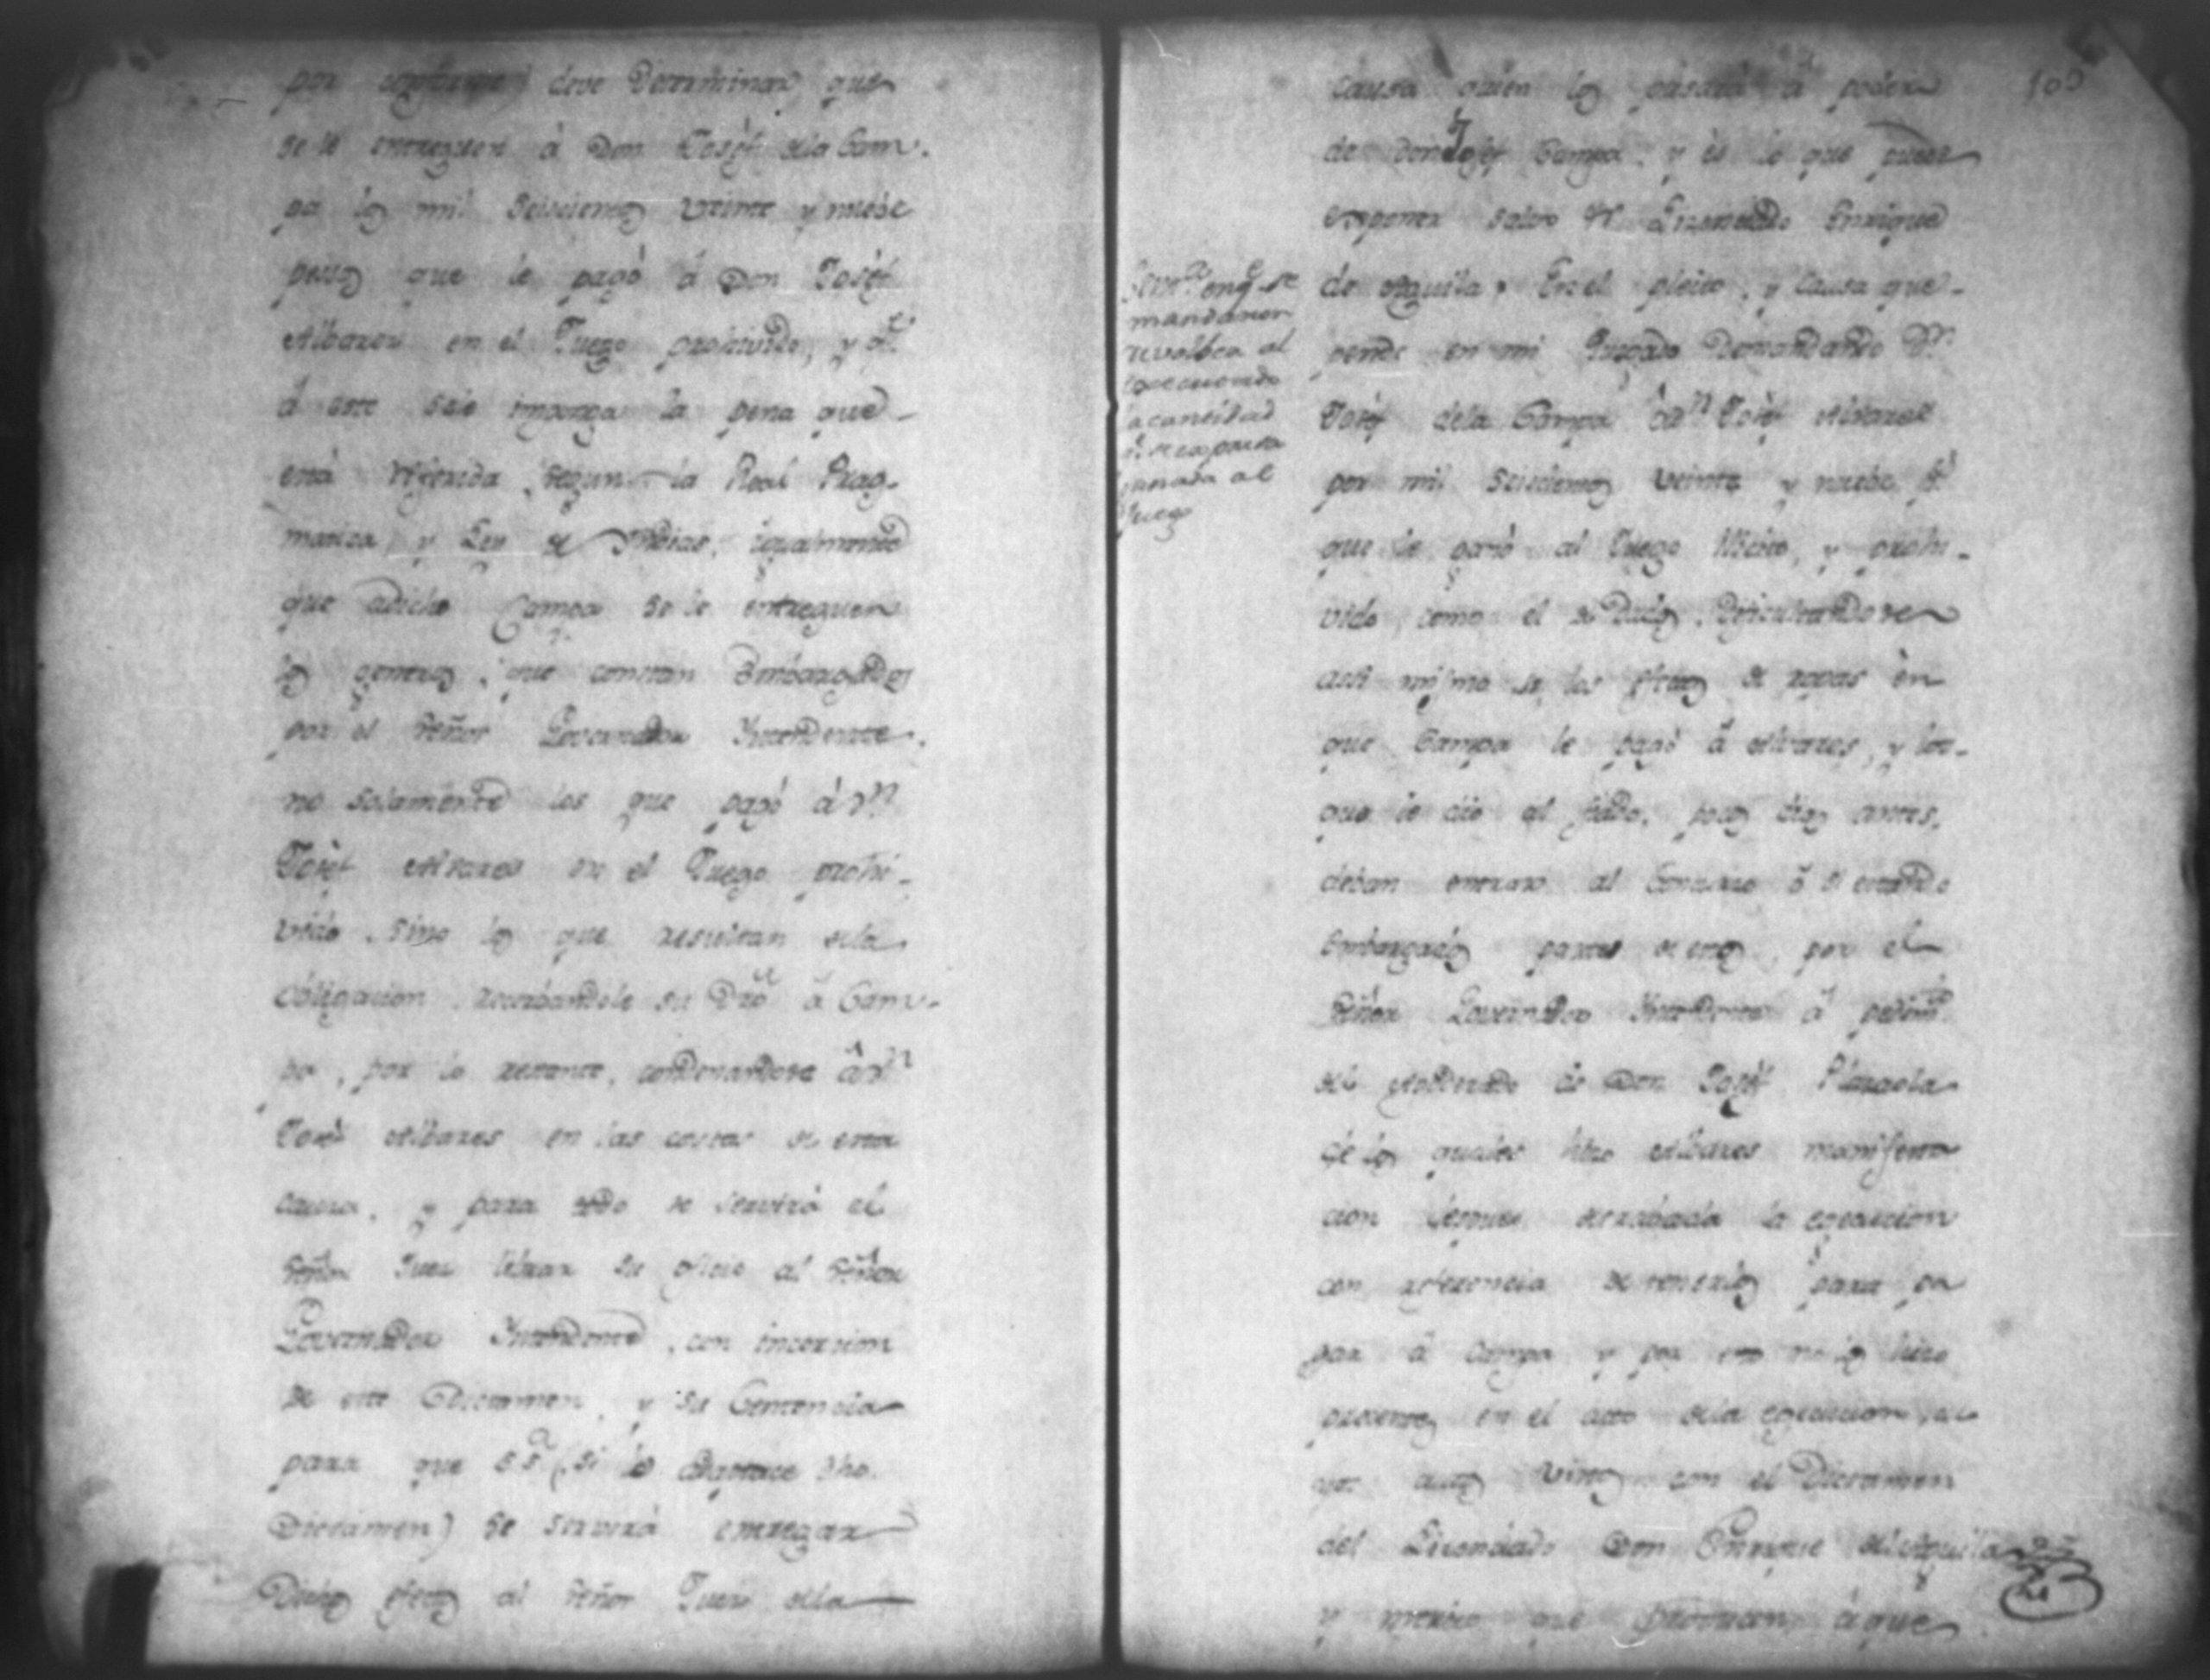 por deve Determinar que
se le entreguen à Don Josèf dela Cam-
pa los mil Seiscientos veinte y nuebe
pesos que le pagò á Don Josèf
Albares en el Juego prohivido, y qe
á este sele imponga la pena que
està referida segun la Real Prag-
matica y Ley de Yndias, igualmente
que adicho Campa se le entreguen
los generos, que constan Embargados
por el Señor Governador Yntendente,
no solamente los que pagó à Dn
Josèf Alvares en el Juego prohi-
vido, sino los que resultan dela
obligacion, reserbandole su Dro á Cam-
pa, por lo restante, condenandose à Dn
Josè Albares en las costas de esta
causa, y para todo se servirà el
Señor Juez librar su oficio al Señor
Governador Yntendente, con incercion
de este Dictamen, y su Sentencia
para que S.Sa (si lo adaptare dho
Dictamen) se servirà entregar
Dichos efectos al Señor Juez dela
103
causa quien los pasarà à poder
de Don Josef Campa, y es lo que puede
exponer salvo &a Lizenciado Enrique
de Aguila, En el pleito, y causa que
pende en mi Juzgado Demandando Dn
Josèf dela Campa à Dn Josèf Albares
por mil Seiscientos veinte y nuebe ps
que le ganò al Juego Ylicito, y prohi-
vido como el de Dados,
asi mismo se los efectos de ropas en
que Campa le pagò á Alvares, y los
que le dio al fiado, pocos dias antes,
deban entrar al Concurso ó si estando
Embargados partes de ellos, por el
Señor Governador Yntendente á pedimto
del Apoderado de Don Josèf Plazaola
de los quales hizo Albares manifesta
cion despues de la egecucion
con referencia de tenerlos para pa
gar à Campa y por esto no los hizo
presentes en el acto dela egecucion,
autos Vistos con el Dictamen
del Licenciado Don Enrique del Aguila
y meritos que que
Sena en qe se
mandaron
debolber al
la cantidad
ganada al
Juego